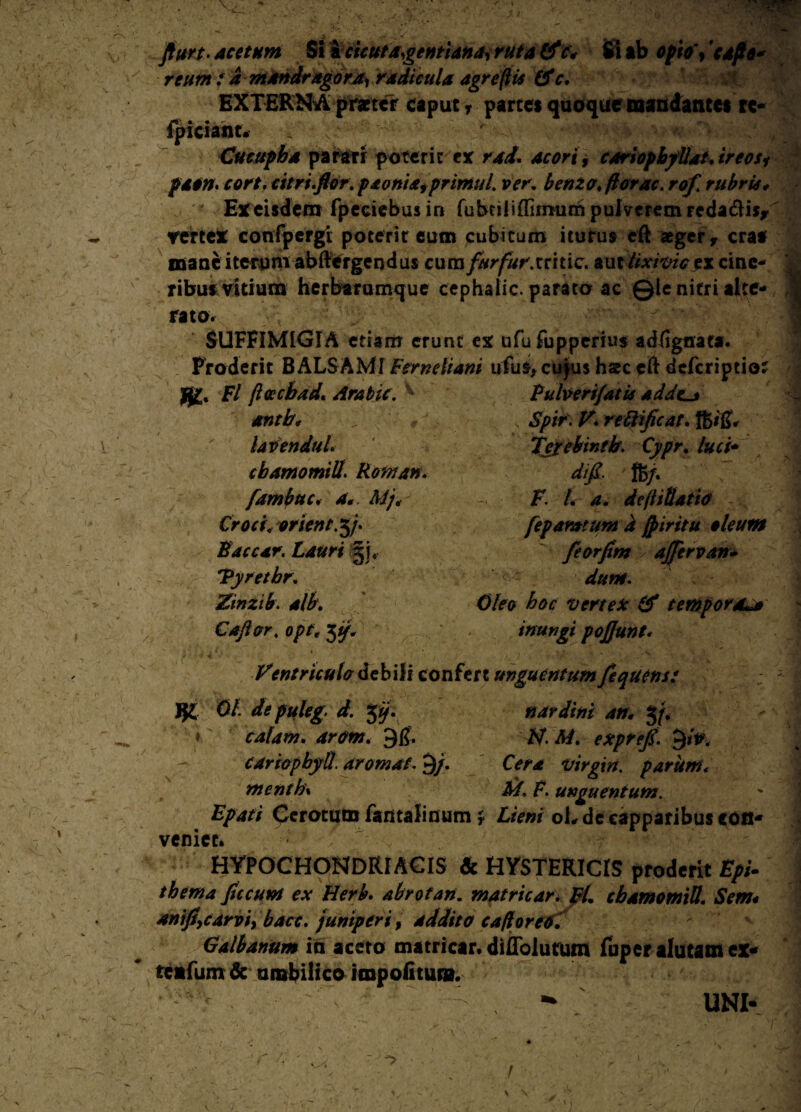 ſturt. acetum Si à cicuta, gentiana, ruta &c. Si ab opio, caſto-
reum: à mandragora, radicula agreſtis &c.
EXTERNA præter caput, partes quoque mandantes re-
ſpiciant.
Cucupha parari poterit ex rad. acori, cariophyllat. ireos,
pæon. cort. citri. flor. pæoniæ, primul. ver. benzo. ſtorac. roſ. rubris.
Ex eisdem ſpeciebus in ſubtiliſſimum pulverem redactis,
vertex conſpergi poterit cum cubitum iturus eſt æger, cras
mane iterum abſtergendus cum furfur. tritic. aut lixivio ex cine-
ribus vitium herbarumque cephalic. parato ac ⊖le nitri alte-
rato.
SUFFIMIGIA etiam erunt ex uſu ſupperius adſignata.
Proderit BALSAMI Ferneliani uſus, cujus hæc eſt deſcriptio:
℞. Fl ſtœchad. Arabic.
anth.
lavendul.
chamomill. Roman.
ſambuc. a. Mj.
Croci. orient. ʒj.
Baccar. Lauri ℥j.
Pyrethr.
Zinzib. alb.
Caſtor. opt. ʒij.
Pulveriſatis adde
Spir. V. rectificat. ℔iß.
Terebinth. Cypr. luci-
diſ. ℔j.
F. l. a. deſtillatio
ſeparatum à ſpiritu oleum
ſeorſim aſſervan-
dum.
Oleo hoc vertex & tempora
inungi poſſunt.
Ventriculo debili confert unguentum ſequens:
℞ Ol. de puleg. d. ʒij.
calam. arom. ℈ß.
cariophyll. aromat. ℈j.
menth.
nardini an. ʒj.
N. M. expreſ. ℈iv.
Cera virgin. parum.
M. F. unguentum.
Epati Cerotum ſantalinum; Lieni ol. de capparibus con-
veniet.
HYPOCHONDRIACIS & HYSTERICIS proderit Epi-
thema ſiccum ex Herb. abrotan. matricar. Fl. chamomill. Sem.
aniſi, carvi, bacc. juniperi, addito caſtoreo.
Galbanum in aceto matricar. diſſolutum ſuper alutam ex-
tenſum & umbilico impoſitum.
UNI-